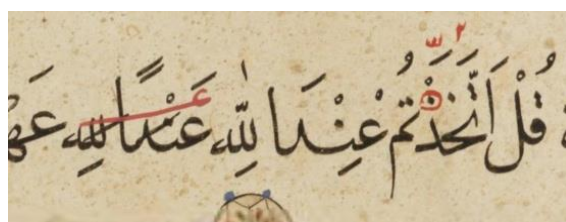 قُلْ أَتَّخَذْتُمْ عِنْدَ اللهِ عَهْدًا اللهِ عَهْ